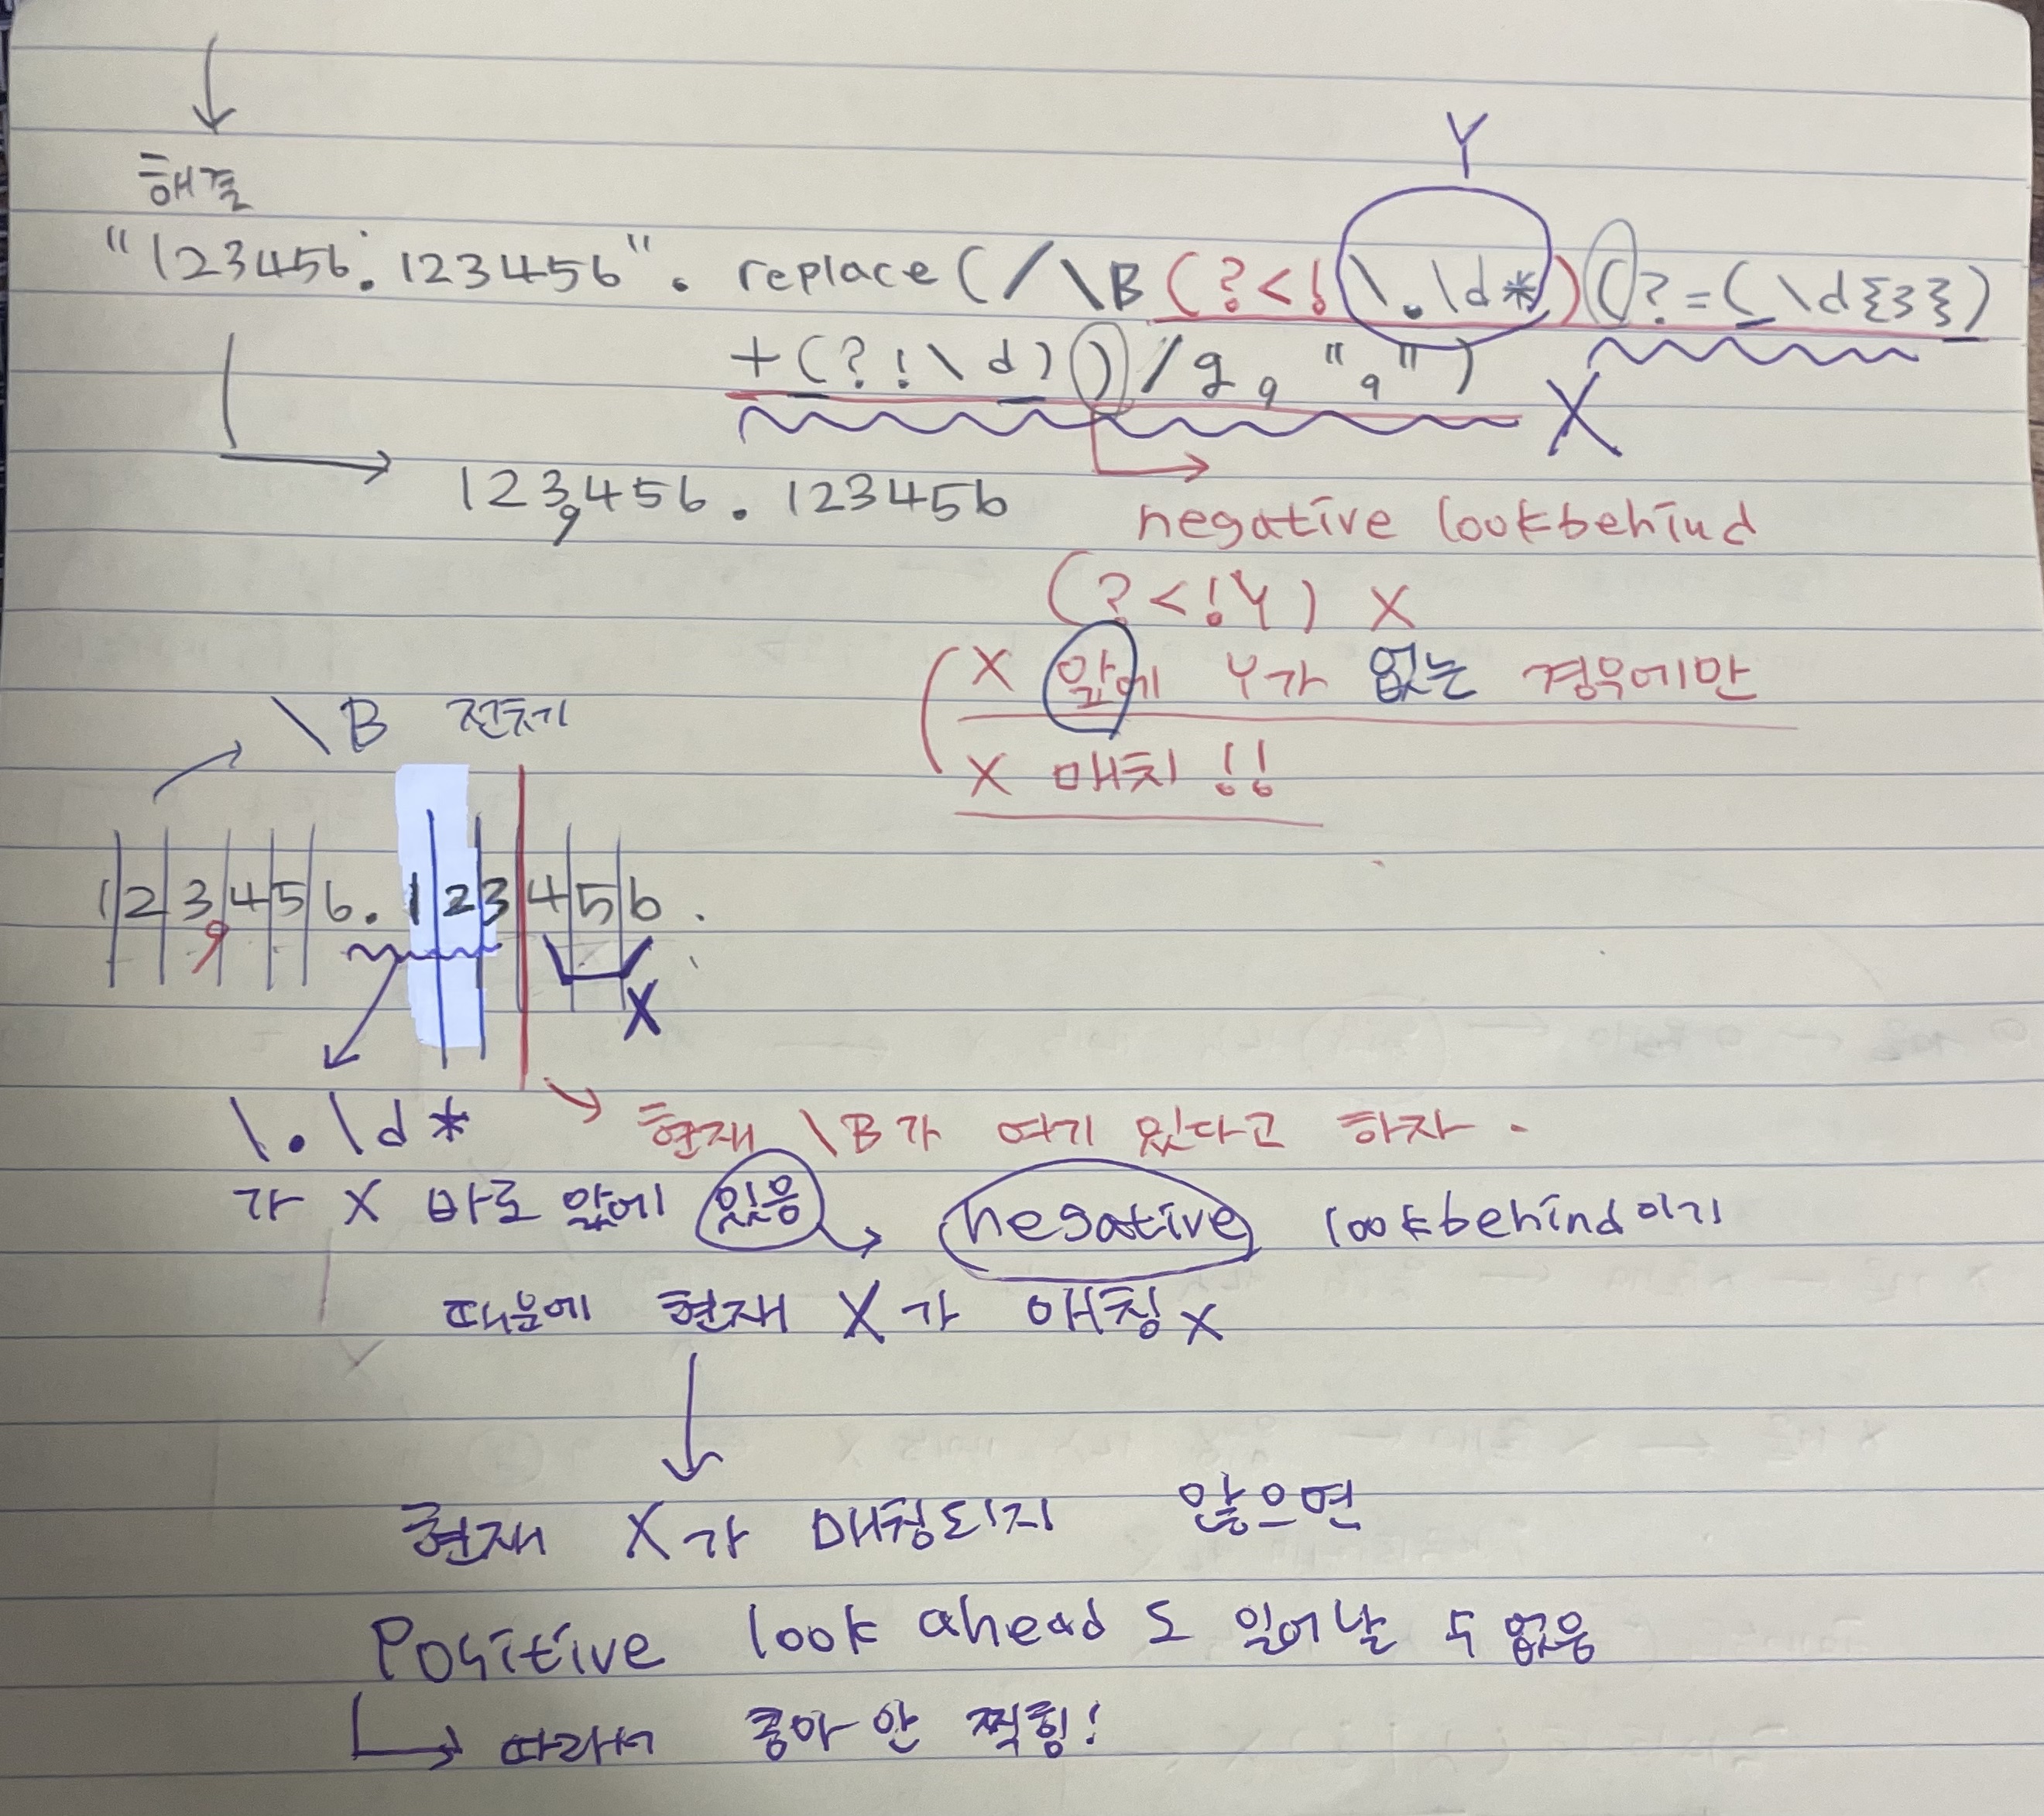 해결
Y
"123456.123456". replace(/\B(?<!\.\d*)(?=(\d{3})
+(?!\d))/g, ",")
X
123,456.123456
negative lookbehind
(?<!Y) X
X 앞에 Y가 없는 경우에만
X 매치!!
\B 전후기
1|2|3,|4|5|6.1|2|3|4|5|6.
X
\.\d*
현재 \B가 여기 있다고 하자.
가 X 바로 앞에 있음 negative lookbehind이기
때문에 현재 X가 매칭x
현재 X가 매칭되지 않으면
Positive look ahead도 일어날 수 없음
따라서 콤마 안 찍힘!